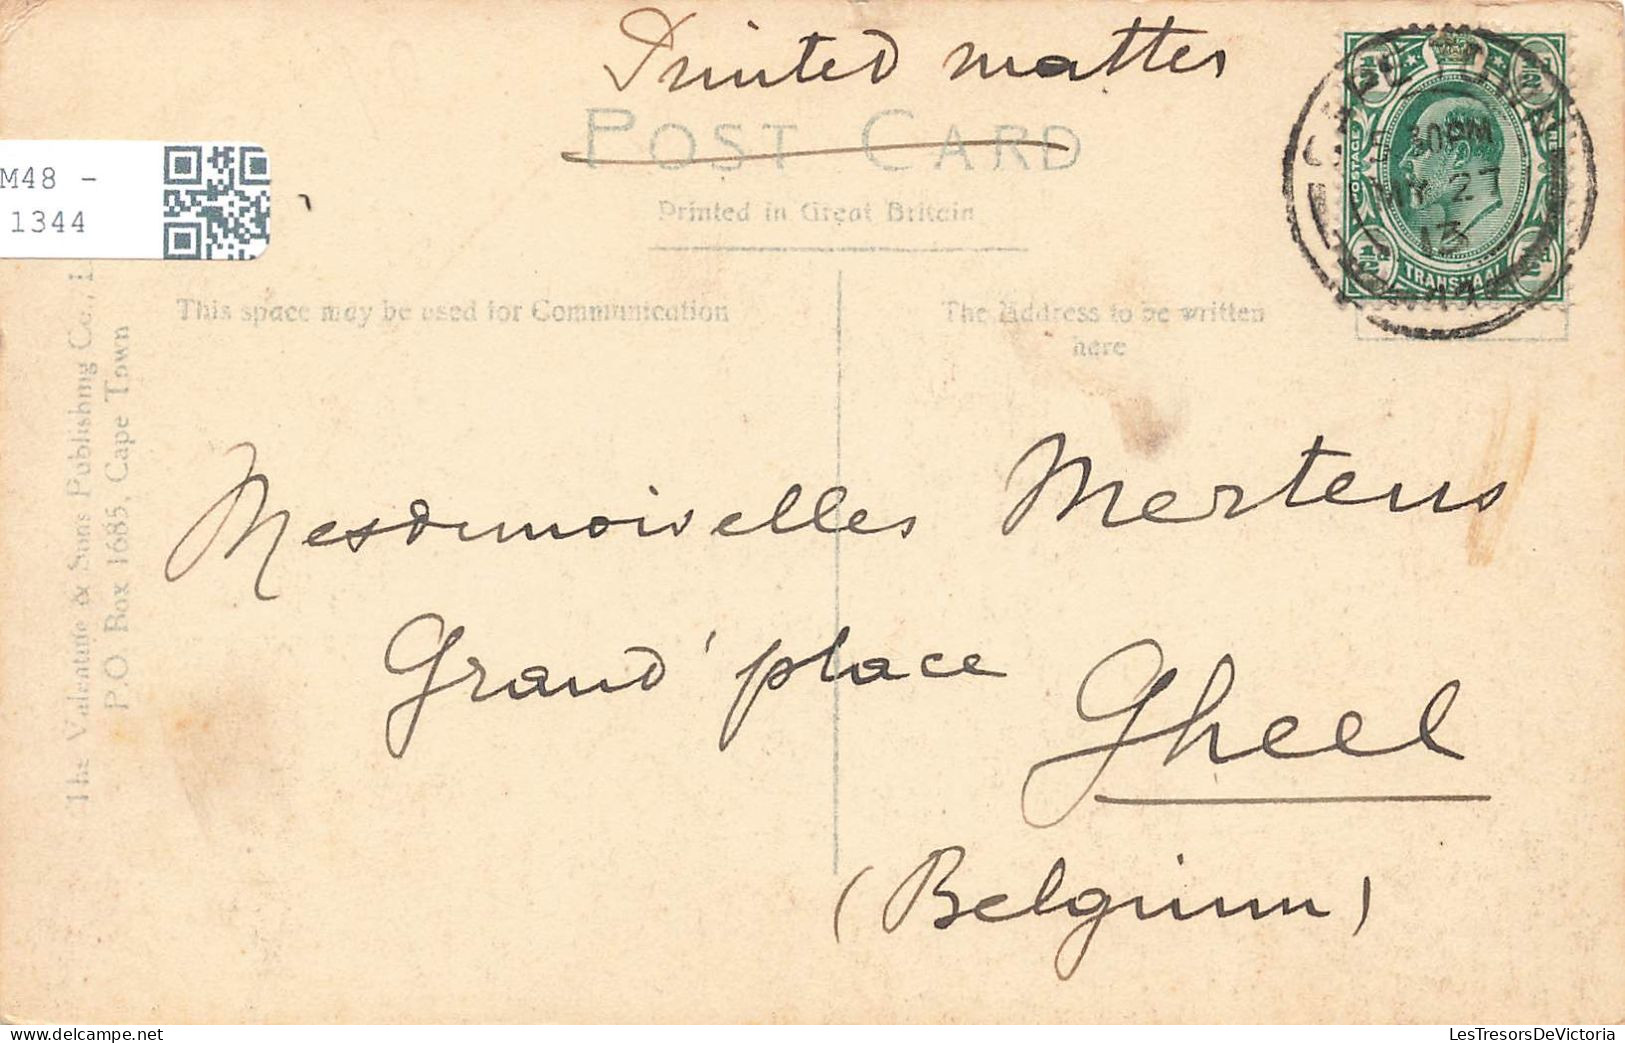 Printed matter
POST CARD
Printed in Great Britain
This space may be used for Communication
The Address to be written
here
M48 -
1344
The Valentine & Sons Publishing Co., L
P.O. Box 1685, Cape Town
POSTAGE
TRANSVAAL
CAPE TOWN
30PM
MY 27
13
Mesdemoiselles Mertens
Grand'place Gheel
(Belgium)
LesTresorsDeVictoria
delcampe.net